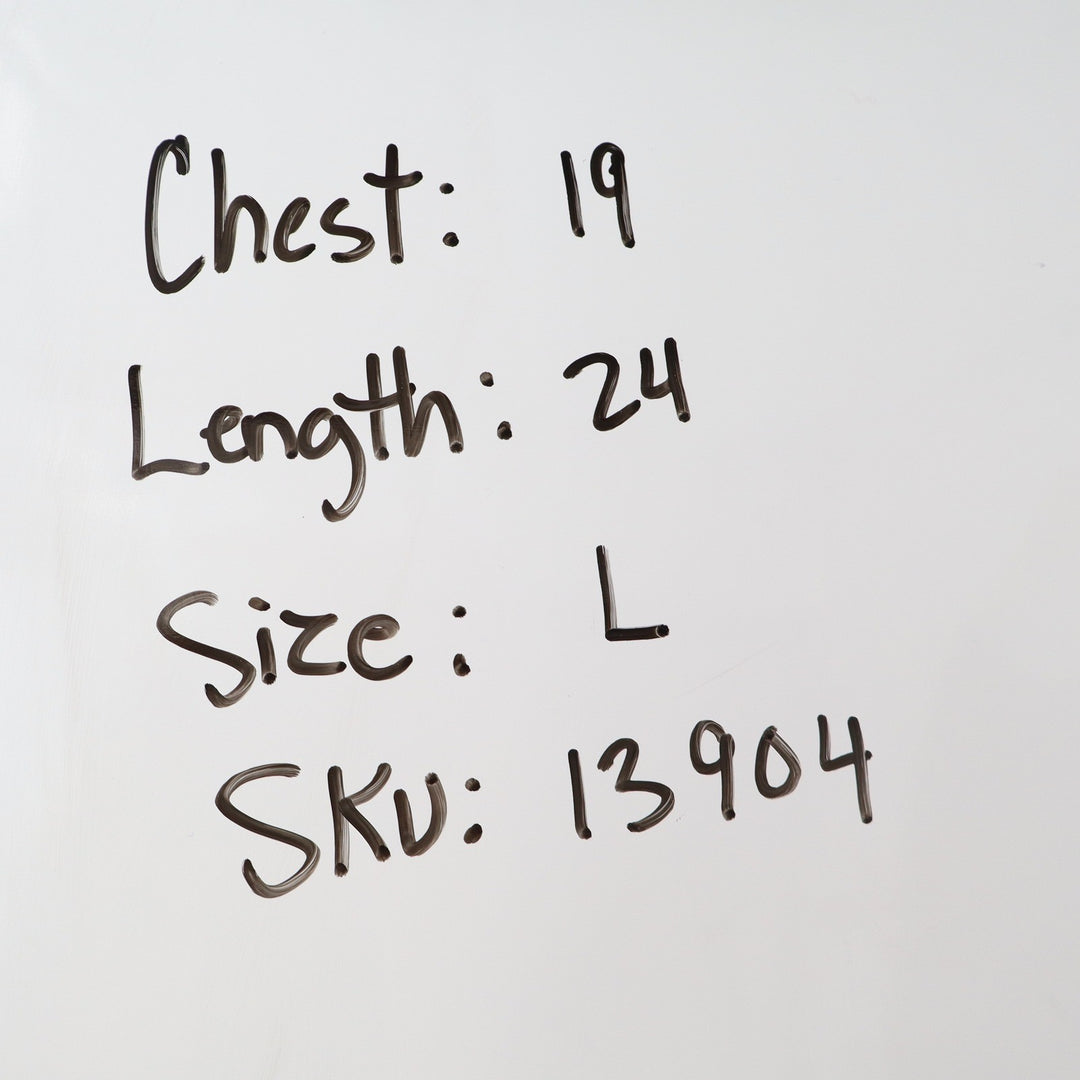 Chest: 19
Length: 24
Size: L
SKU: 13904